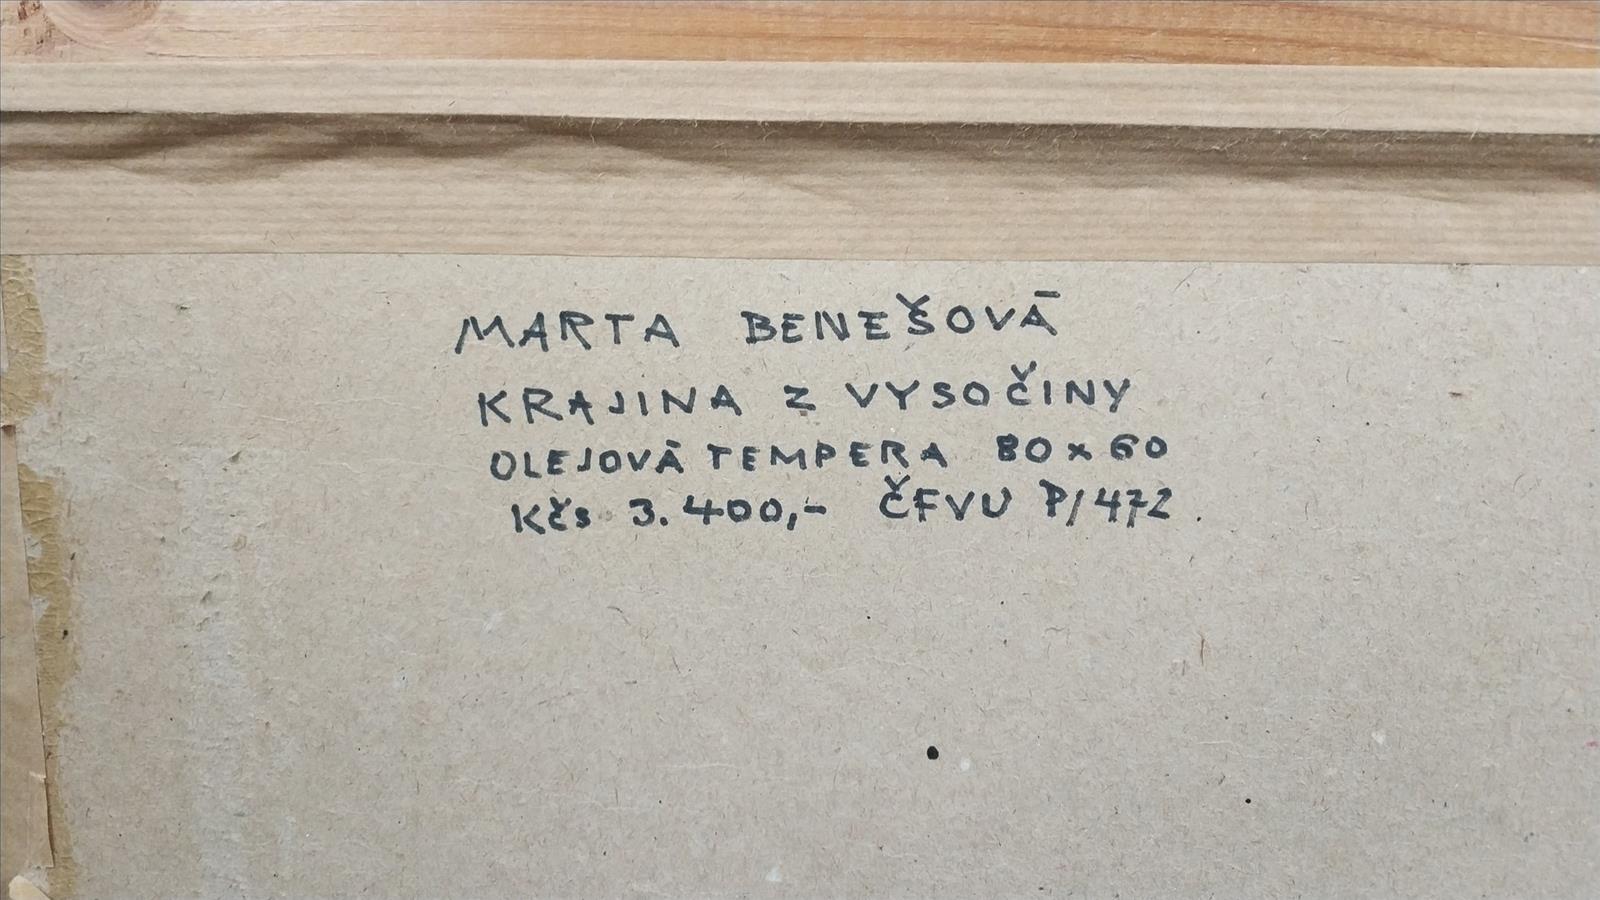 MARTA BENEŠOVÁ
KRAJINA Z VYSOČINY
OLEJOVÁ TEMPERA 80x60
Kčs 3.400,- ČFVU P/472